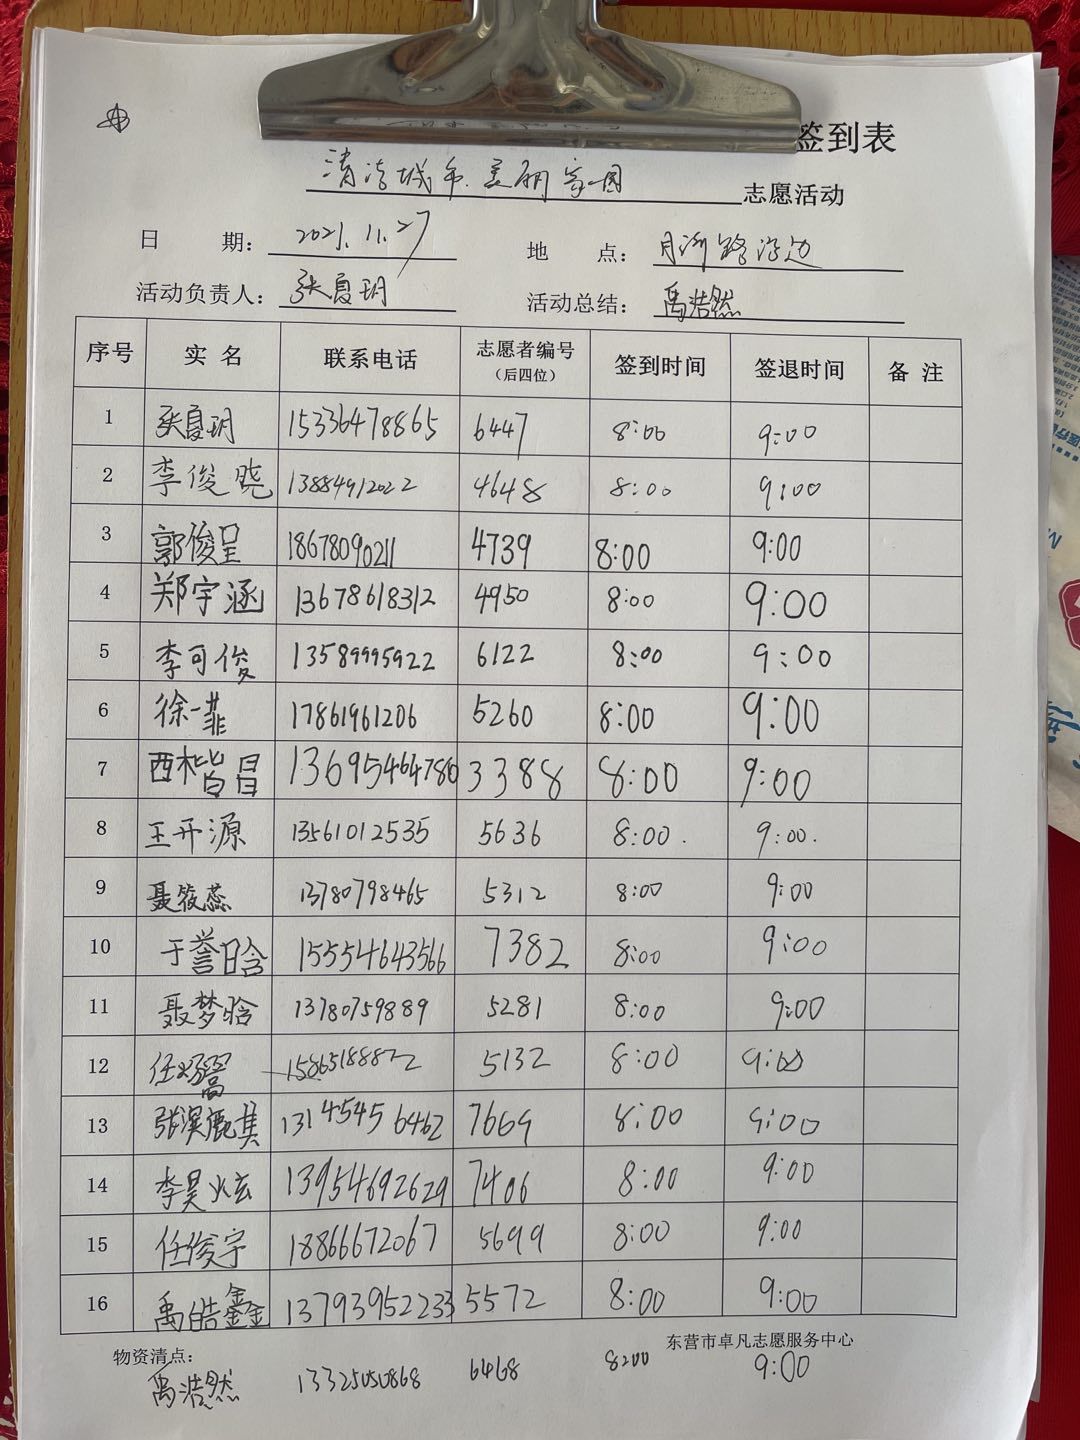 签到表
清洁城市.美丽家园 志愿活动
日 期: 2021.11.27 地 点: 月河路河边
活动负责人: 张夏玥 活动总结: 禹浩然
序号 实名 联系电话 志愿者编号(后四位) 签到时间 签退时间 备注
1 张夏玥 15336478865 6447 8:00 9:00
2 李俊晓 13884912022 4648 8:00 9:00
3 郭俊呈 18678090211 4739 8:00 9:00
4 郑宇涵 13678618312 4950 8:00 9:00
5 李可俊 13589995922 6122 8:00 9:00
6 徐一菲 17861961206 5260 8:00 9:00
7 西楷昌 13695464780 3388 8:00 9:00
8 王开源 13561012535 5636 8:00. 9:00.
9 聂筱蕊 13780798465 5312 8:00 9:00
10 于誉晗 15554643566 7382 8:00 9:00
11 聂梦晗 13780759889 5281 8:00 9:00
12 任 5132 8:00 9:00
13 张淏 13145456462 7669 8:00 9:00
14 李昊炫 13954692629 7406 8:00 9:00
15 任俊宇 18866672067 5699 8:00 9:00
16 禹皓鑫 13793952233 5572 8:00 9:00
物资清点: 东营市卓凡志愿服务中心
禹浩然 13325050868 6468 8:00 9:00